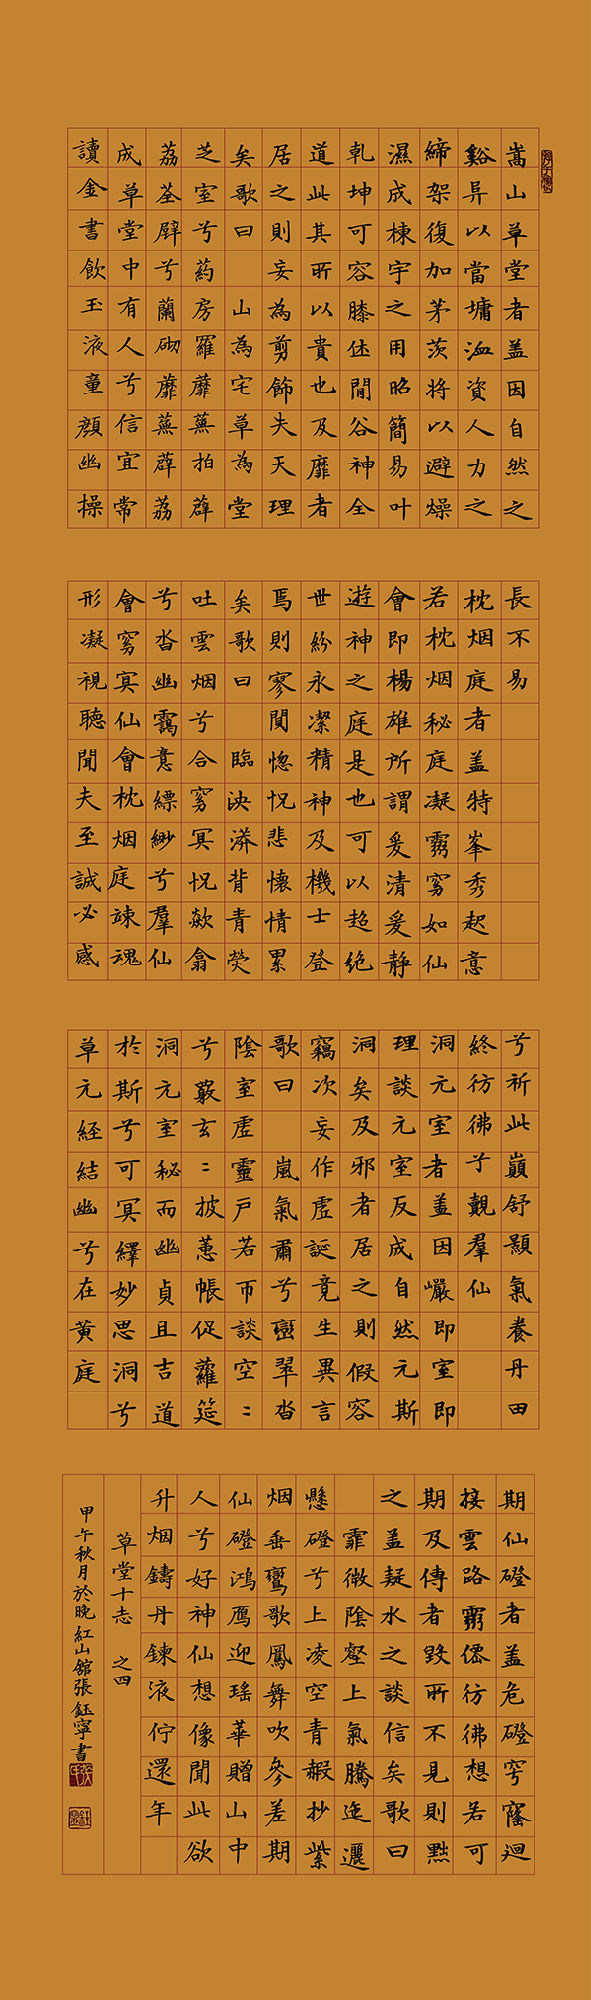 嵩山草堂者盖因自然之
谿异以當墉洫資人力之
締架復加茅茨將以避燥
濕成棟宇之用昭簡易叶
乾坤可容膝休閒谷神全
道此其所以貴也及靡者
居之則妄為剪飾夫天理
矣歌曰 山為宅草為堂
芝室兮葯房羅蘼蕪拍薜
荔荃壁兮蘭砌蘼蕪薜荔
成草堂中有人兮信宜常
讀金書飲玉液童顏幽操
長不易
枕烟庭者盖特峯秀起意
若枕烟秘庭凝霧窅如仙
會即楊雄所謂爰清爰靜
遊神之庭是也可以超绝
世紛永潔精神及機士登
焉則寥閴惚怳悲懷情累
矣歌曰 臨泱漭背青熒
吐雲烟兮合窅冥怳欻翕
兮沓幽靄意縹緲兮羣仙
會窅冥仙會枕烟庭竦魂
形凝視聽聞夫至誠必感
兮祈此巔舒顥氣養丹田
終彷彿兮觀羣仙
洞元室者盖因巖即室即
理談元室反成自然元斯
洞矣及邪者居之則假容
竊次妄作虛誕竟生異言
歌曰 嵐氣肅兮巒翠沓
陰室虛靈戶若帀談空〻
兮覈玄〻披蕙帳促蘿筵
洞元室秘而幽貞且吉道
於斯兮可冥繹妙思洞兮
草元經結幽兮在黃庭
期仙磴者盖危磴穹窿迴
接雲路霧僊彷彿想若可
期及傳者毀所不見則黜
之盖疑水之談信矣歌曰
霏微陰壑上氣騰迤邐
懸磴兮上凌空青抄紫
烟垂鸞歌鳳舞吹參差期
仙磴鴻鴈迎瑤華贈山中
人兮好神仙想像聞此欲
升烟鑄丹鍊液佇還年
草堂十志 之四
甲午秋月於晚紅山館張鈺寧書